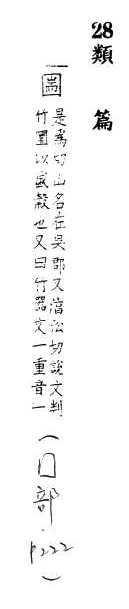 28類 篇
圌
是爲切山名在吳郡又湻沿切說文判
竹圜以盛穀也又曰竹器文一重音一
(囗部.P222)